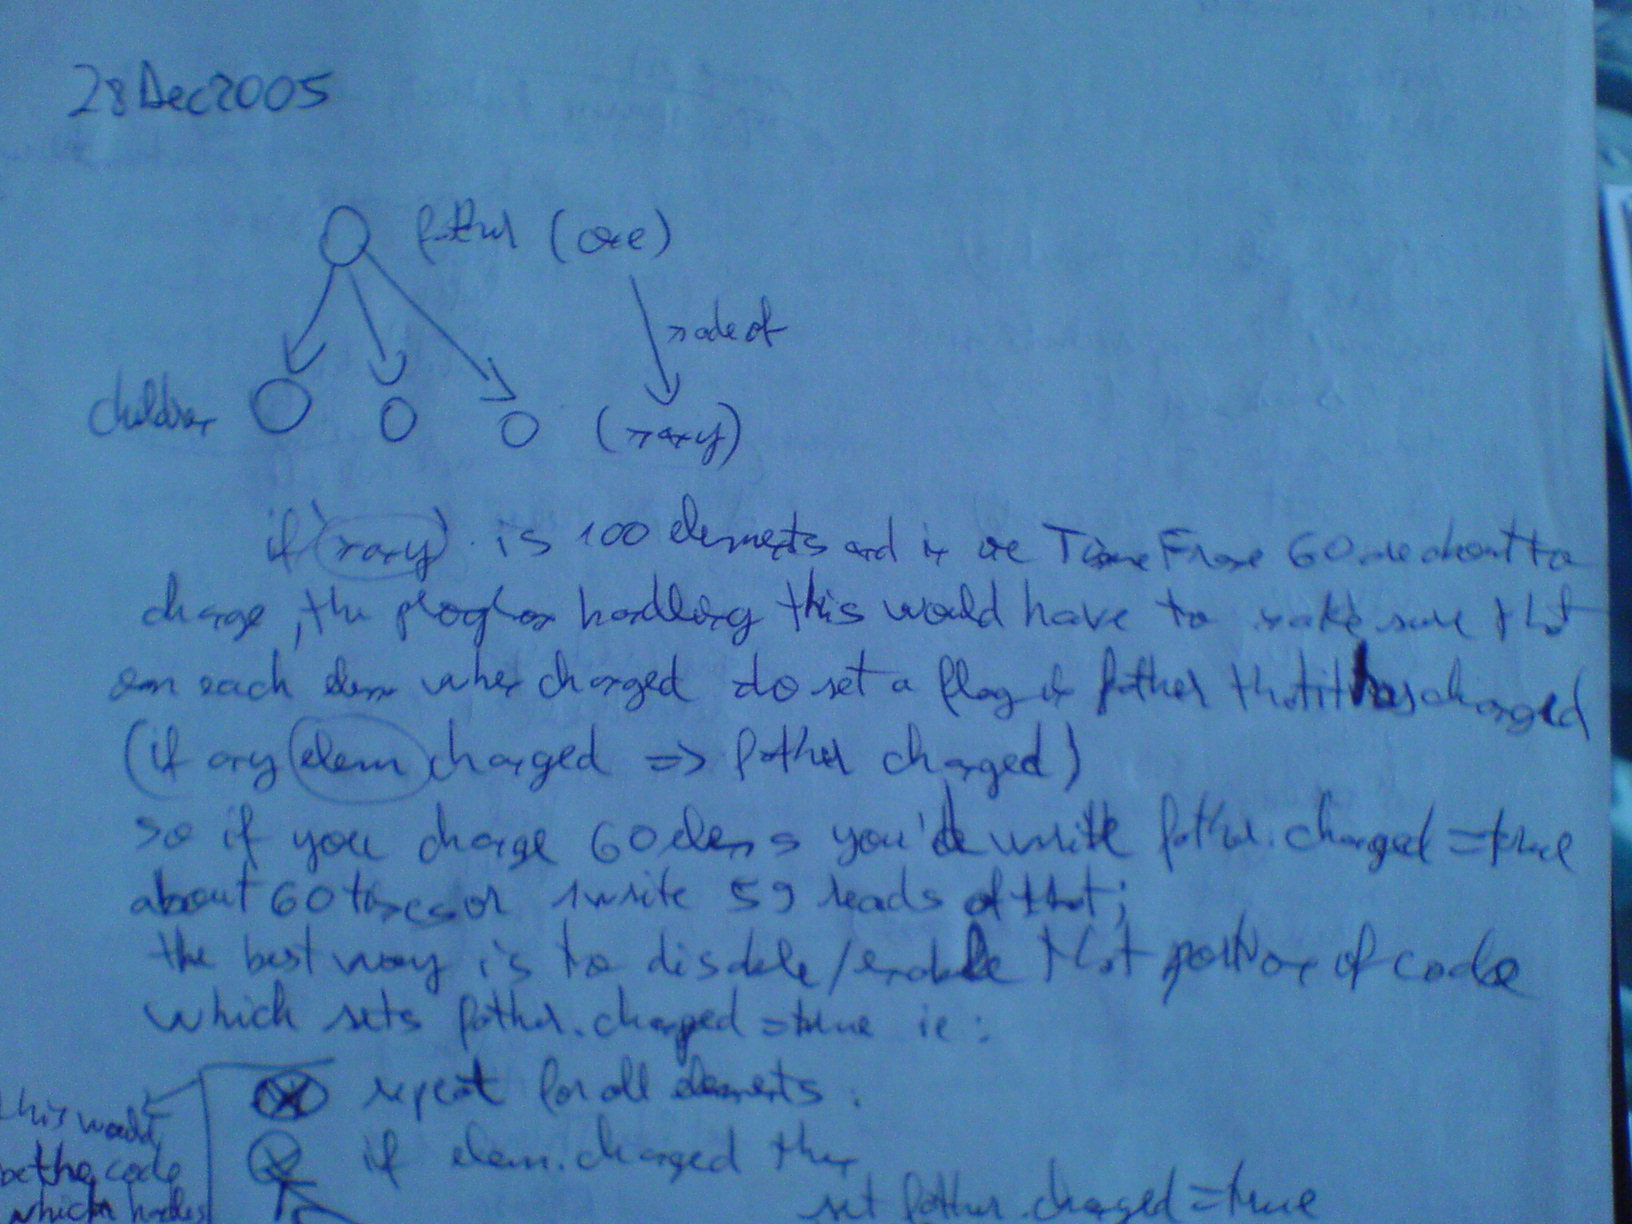 28Dec2005
father (one)
made of
children
(many)
if (many) is 100 elements and in one TimeFrame 60 are about to
change, the program handling this would have to make sure that
on each elem when changed to set a flag of father that it has changed
(if any elem changed => father changed)
so if you change 60 elems you'd write father.changed=true
about 60 times or 1 write 59 reads of that;
the best way is to disable/enable that portion of code
which sets father.changed=true ie:
repeat for all elements:
if elem.changed then
set father.changed=true
this would
be the code
which